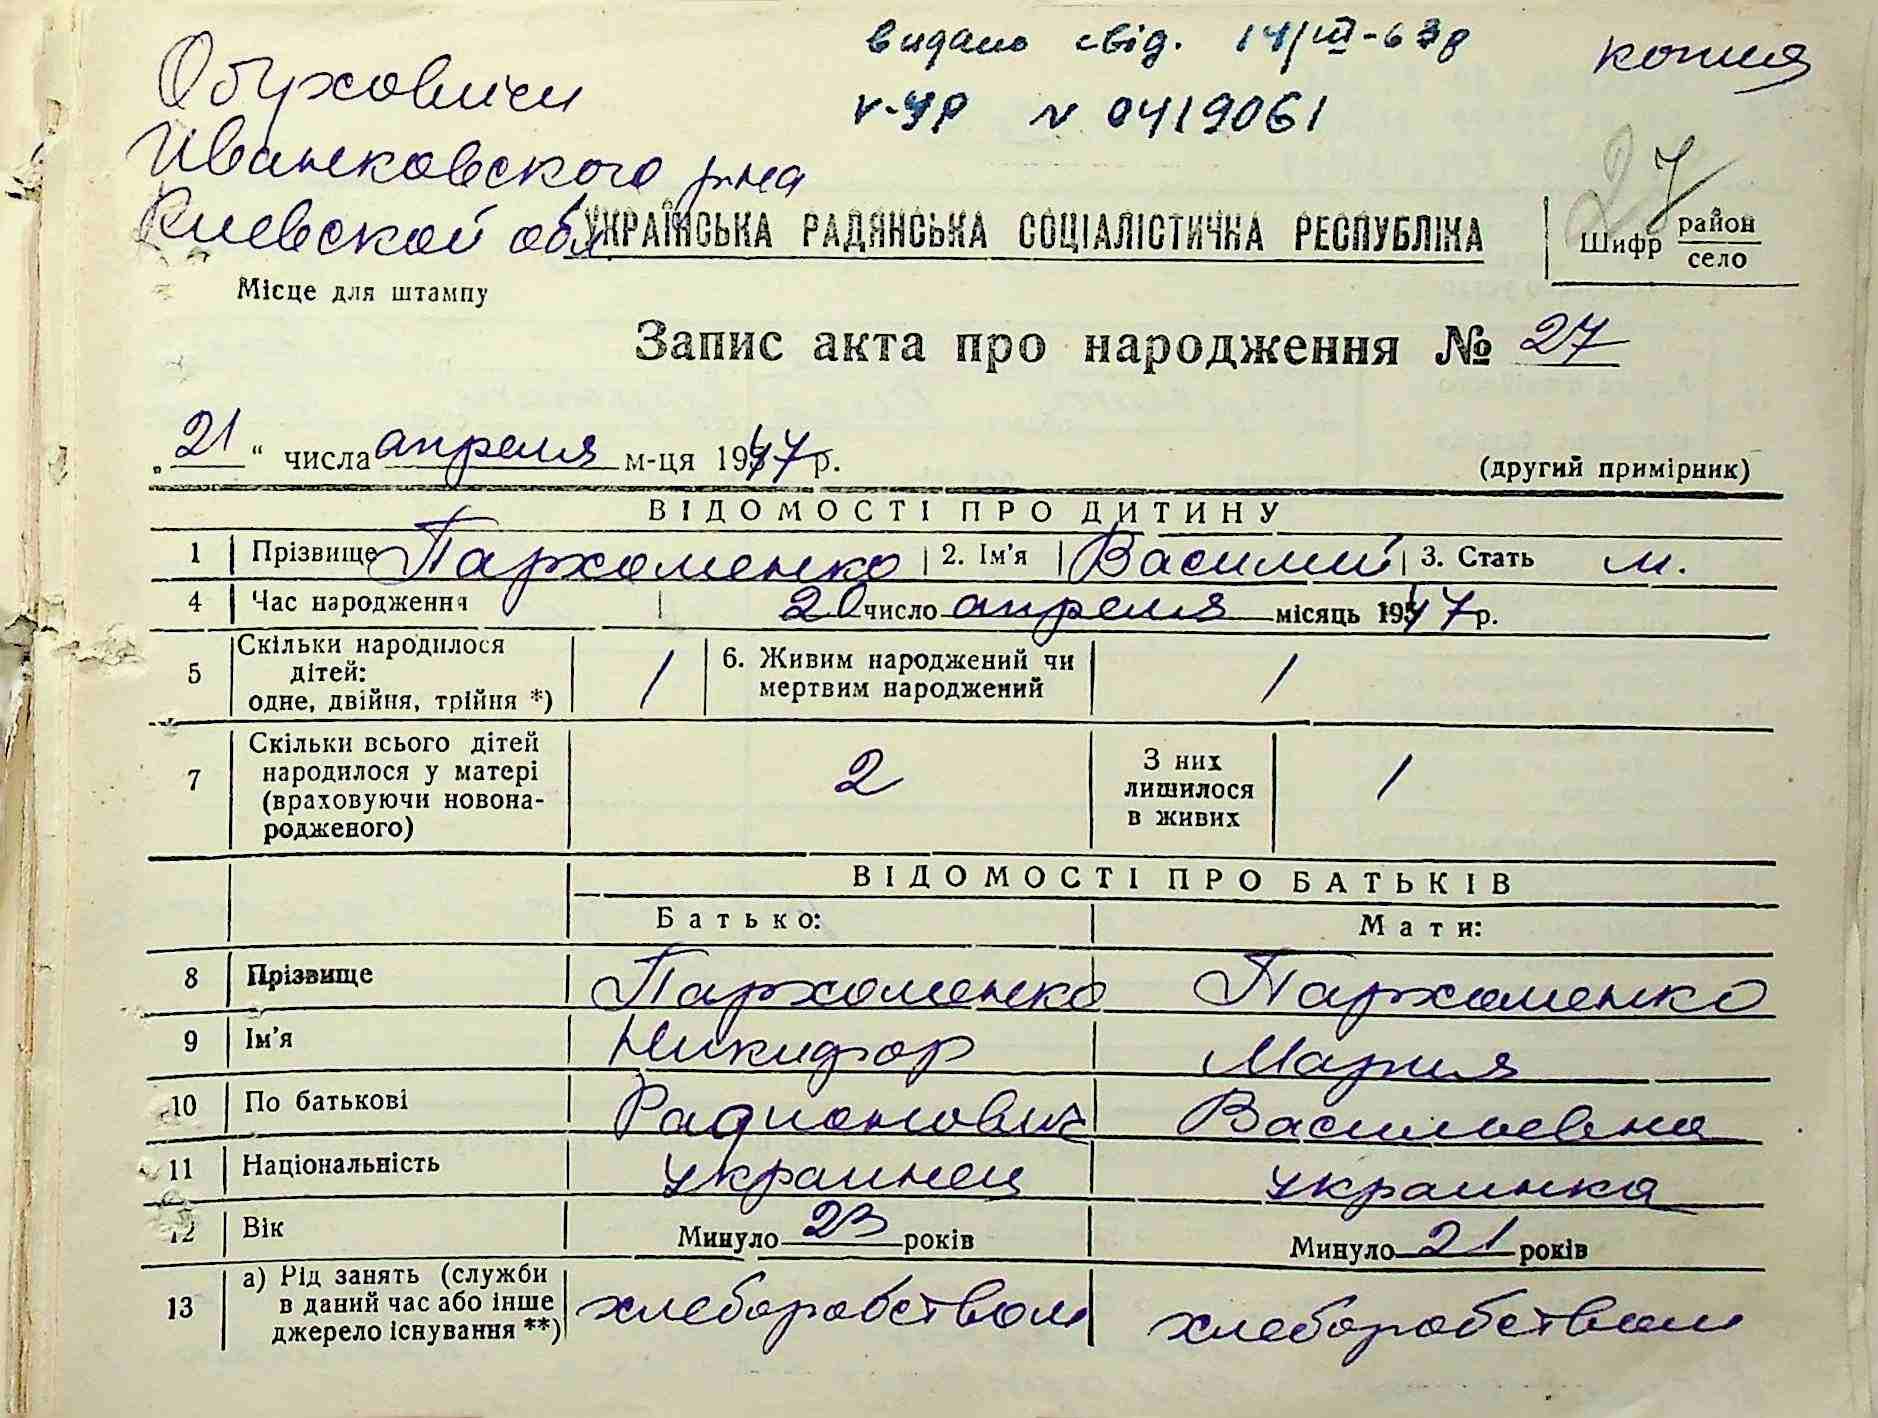 видано свід. 14/III-63р
копия
V-УР N 0419061
Обуховичи
Иванковского р-на
Киевской обл
УКРАЇНСЬКА РАДЯНСЬКА СОЦІАЛІСТИЧНА РЕСПУБЛІКА
27
Шифр район
село
Місце для штампу
Запис акта про народження № 27
„21“ числа апреля м-ця 1947 р.
(другий примірник)
ВІДОМОСТІ ПРО ДИТИНУ
1 Прізвище Пархоменко 2. Ім'я Василий 3. Стать м.
4 Час народження 20 число апреля місяць 1947 р.
5 Скільки народилося дітей: одне, двійня, трійня *) 1 6. Живим народжений чи мертвим народжений 1
7 Скільки всього дітей народилося у матері (враховуючи новонародженого) 2 З них лишилося в живих 1
ВІДОМОСТІ ПРО БАТЬКІВ
Батько: Мати:
8 Прізвище Пархоменко Пархоменко
9 Ім'я Никифор Мария
10 По батькові Радионович Васильевна
11 Національність украинец украинка
12 Вік Минуло 23 років Минуло 21 років
13 а) Рід занять (служби в даний час або інше джерело існування **) хлеборобством хлеборобством